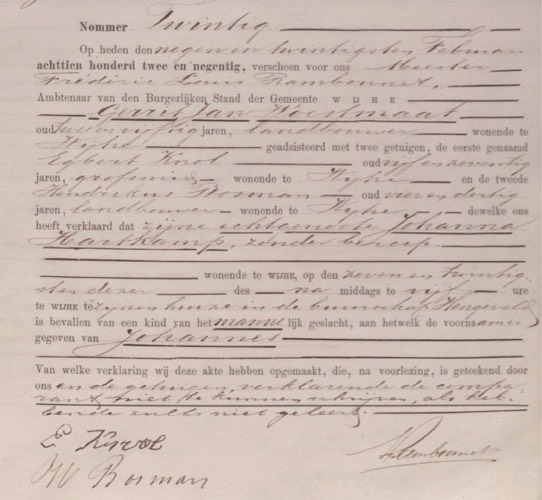 Nommer Twintig
Op heden den negen en twintigsten Februari
achttien honderd twee en negentig, verscheen voor ons Meester
Frédéric Louis Rambonnet,
Ambtenaar van den Burgerlijken Stand der Gemeente WIJHE
Gerrit Jan Horstmaat
oud twee en vijftig jaren, landbouwer wonende te
Wijhe geadsisteerd met twee getuigen, de eerste genaamd
Egbert Knol oud vijf en zeventig
jaren, wonende te Wijhe en de tweede
Hendrikus Bosman oud vier en dertig
jaren, landbouwer wonende te Wijhe dewelke ons
heeft verklaard dat zijne echtgenoote Johanna
Hartkamp, zonder beroep
wonende te WIJHE, op den zeven en twintig
sten dezer des na middags te vijf ure
te WIJHE te zijnen huize in de buurschap Hengevelde
is bevallen van een kind van het mannelijk geslacht, aan hetwelk de voornaamen
gegeven van Johannes
Van welke verklaring wij deze akte hebben opgemaakt, die, na voorlezing, is geteekend door
ons en de getuigen, verklarende de compa-
rant niet te kunnen schrijven, als heb-
bende zulks niet geleerd.
E Knol
H Bosman
Rambonnet